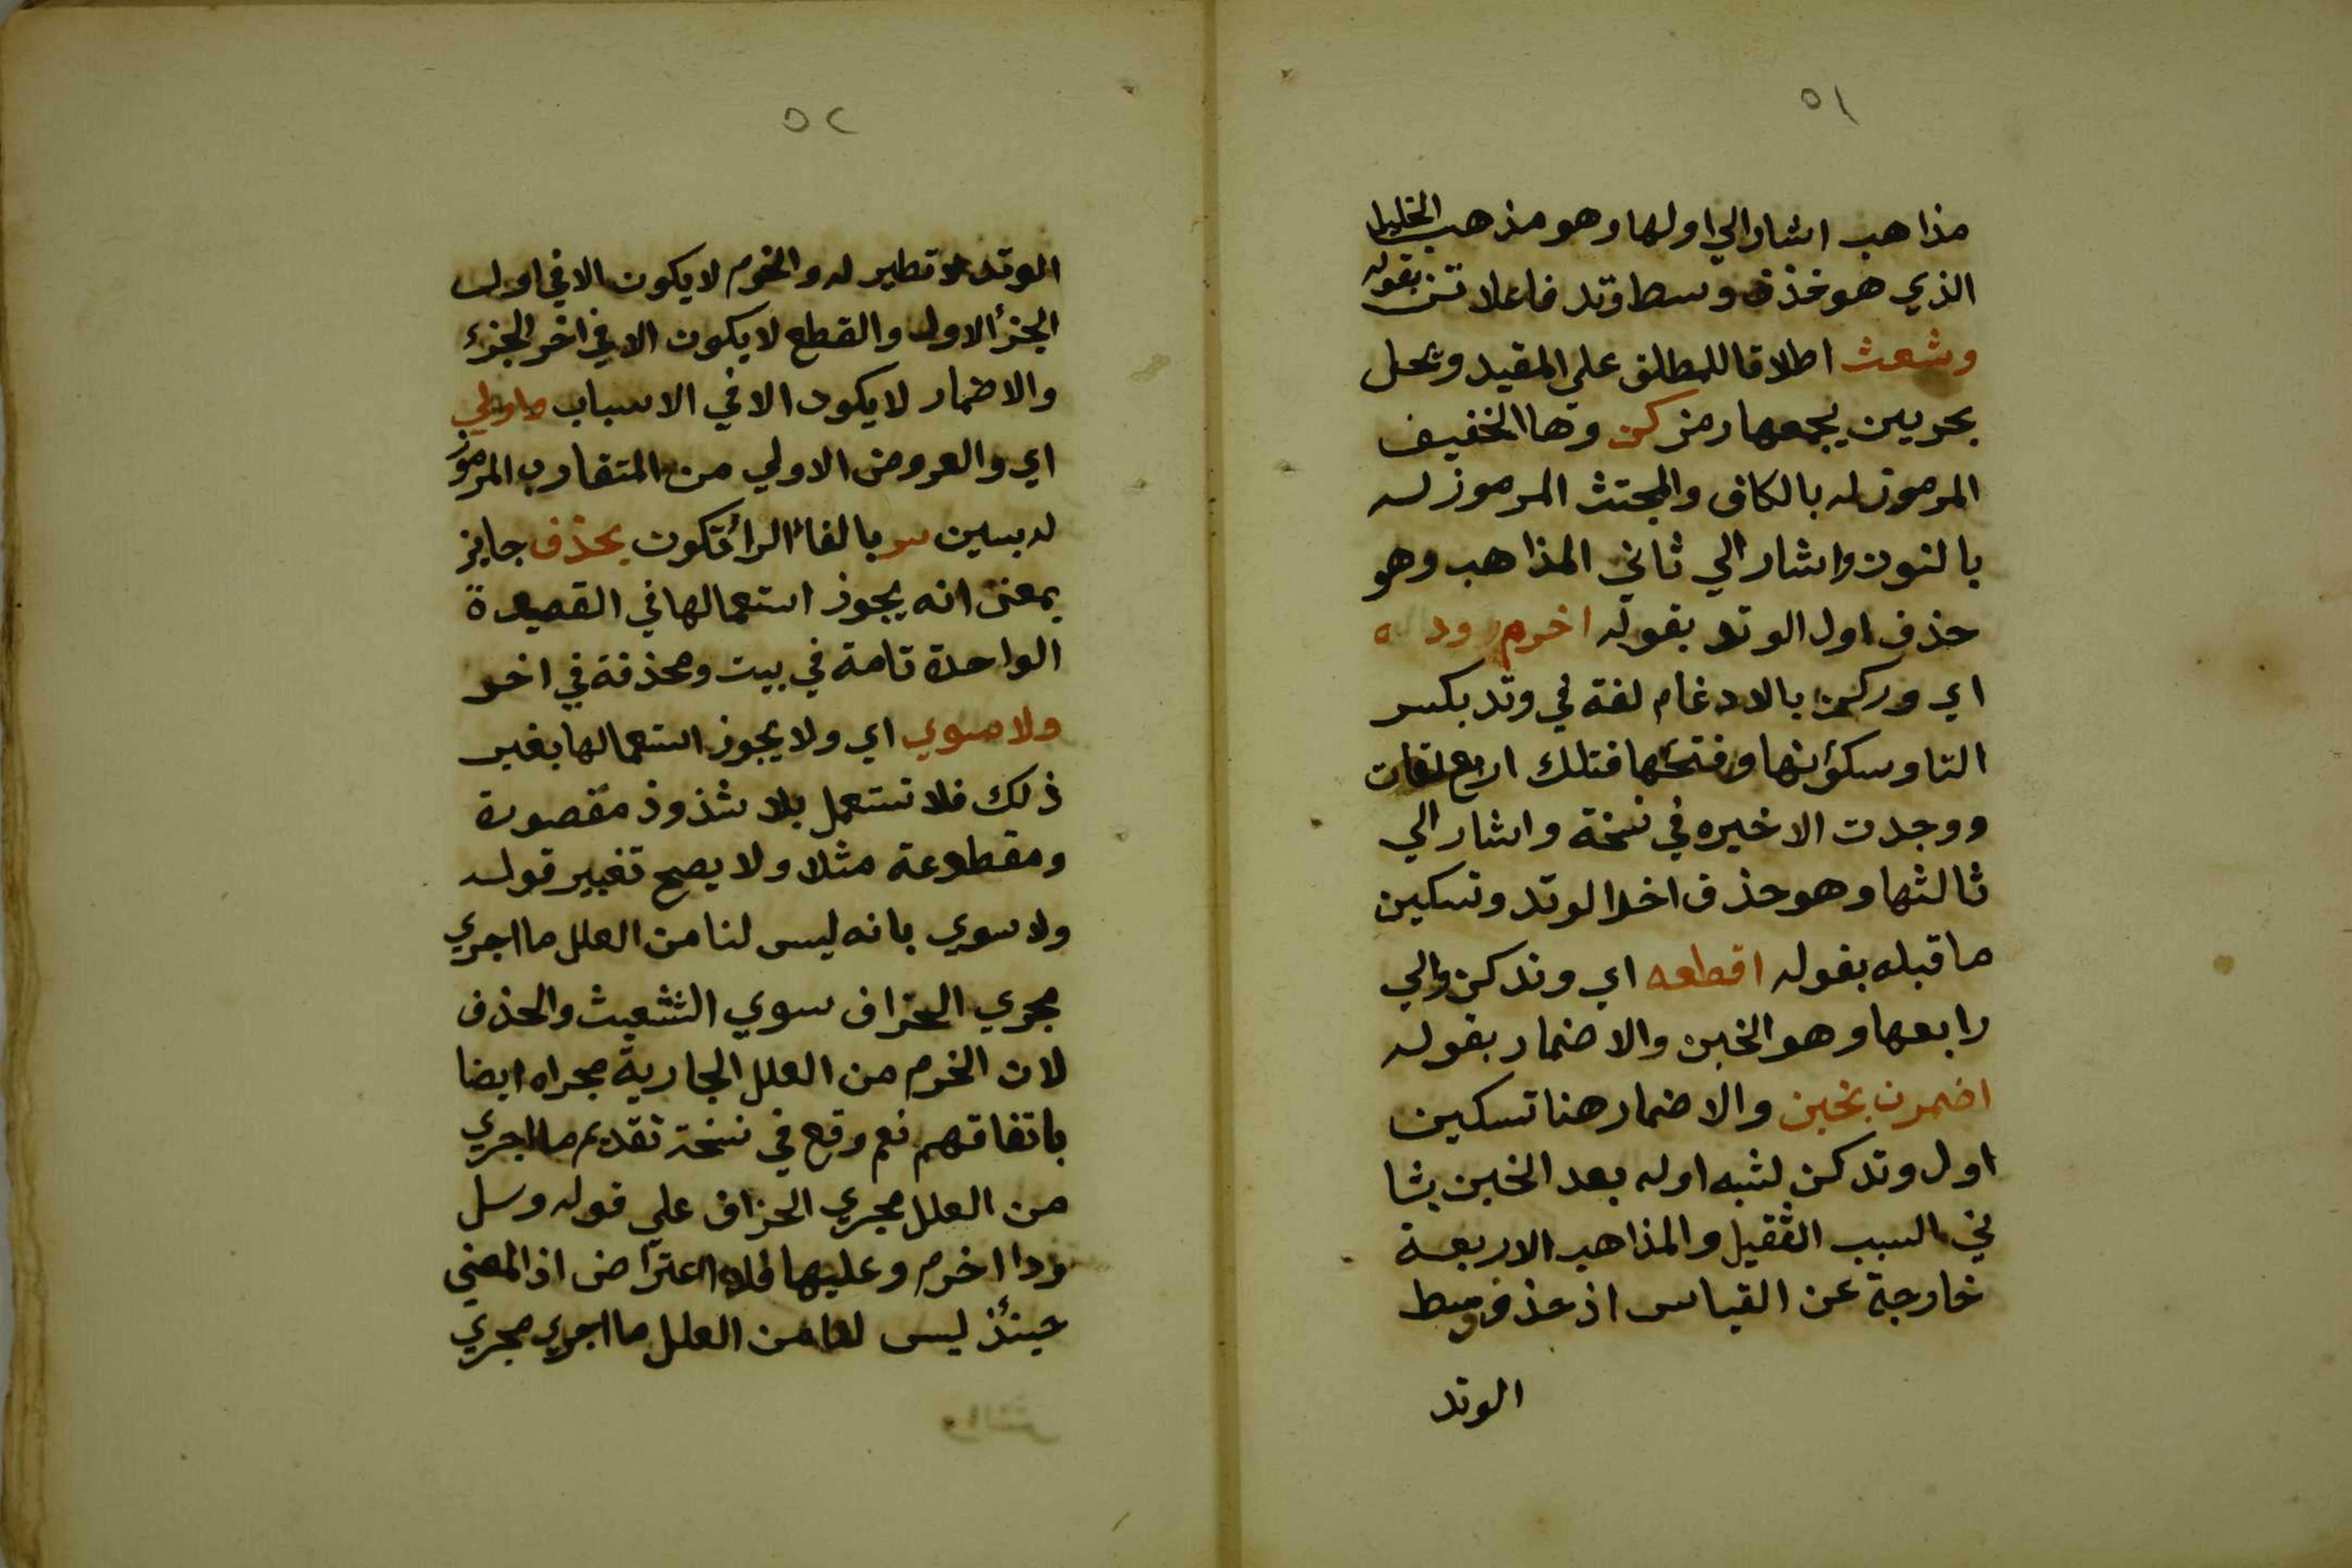 ٥١
مذاهب اشار الي اولها وهو مذهب الخليل
الذي هو حذف وسط وتد فاعلاتن بقوله
وشعث اطلاقا للمطلق علي المقيد ومحل
بحرين يجمعها رمز كن وهما الخفيف
المرموز له بالكاف والمجتث المرموز له
بالنون واشار الي ثاني المذاهب وهو
حذف اول الوتد بقوله اخرم ود ه
اي وركن بالادغام لغة في وتد بكسر
التا وسكونها وفتحها فتلك اربع لغات
ووجدت الاخيره في نسخة واشار الي
ثالثها وهو حذف اخر الوتد وتسكين
ما قبله بقوله اقطعه اي وتد كن والي
رابعها وهو الخبن والاضمار بقوله
اضمرن بخبن والاضمار هنا تسكين
اول وتد كن لشبه اوله بعد الخبن بثا
ني السبب الثقيل والمذاهب الاربعة
خارجة عن القياس اذ حذف وسط
الوتد
٥٢
الوتد لا نظير له والخرم لا يكون الا في اول
الجزأ الاول والقطع لا يكون الا في اخر الجزء
والاضمار لا يكون الا في الاسباب واولي
اي والعروض الاولي من المتقارب المرموز
له بسين سر بالفاء الرأ تكون بحذف جايز
بمعنى انه يجوز استعمالها في القصيدة
الواحدة تامة في بيت ومحذفة في اخر
ولا سوي اي ولا يجوز استعمالها بغير
ذلك فلا تستعمل بلا شذوذ مقصورة
ومقطوعة مثلا ولا يصح تغيير قوله
ولا سوي بانه ليس لنا من العلل ما اجري
مجري الزحاف سوي التشعيث والحذف
لان الخرم من العلل الجارية مجراه ايضا
باتفاقهم نعم وقع في نسخة تقديم ما اجري
من العلل مجري الزحاف علي قوله وسل
ودا اخرم وعليها فلا اعتراض اذ المعني
حينئذ ليس لنا من العلل ما اجري مجري